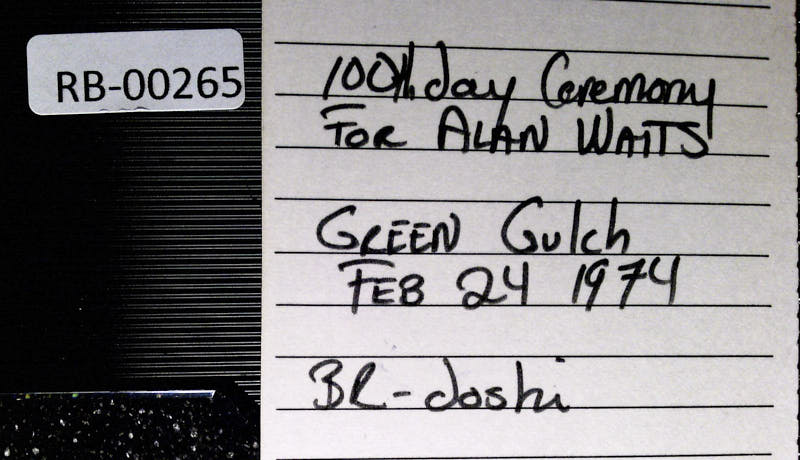 RB-00265
100th day Ceremony
FOR ALAN WATTS
GREEN Gulch
FEB 24 1974
BR-doshi